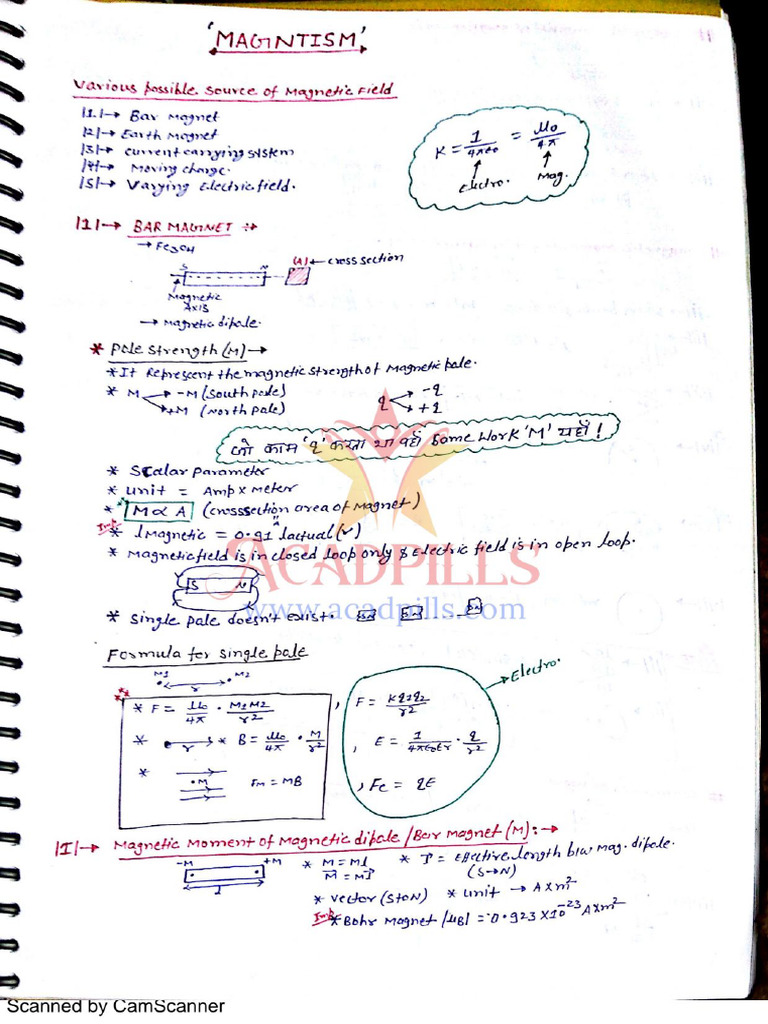 'MAGNTISM'
Various possible source of Magnetic Field
|1|→ Bar Magnet
|2|→ Earth Magnet
|3|→ current carrying system
|4|→ Moving charge.
|5|→ Varying Electric field.
K = 1/4πε0 = μ0/4π
Electro. Mag.
|1|→ BAR MAGNET :→
→ Fe3O4
S N (A) ← cross section
Magnetic
Axis
→ Magnetic dipole.
* Pole strength (M) →
* It Represent the magnetic strength of Magnetic pole.
* M → -M (South pole)
→ +M (North pole)
q → -q
→ +q
जो काम 'q' करता था वहाँ Same Work 'M' यहाँ !
* Scalar parameter
* unit = Amp x meter
* M ∝ A (crosssection area of Magnet)
Imp * lMagnetic = 0.91 lactual (✓)
* Magnetic field is in closed loop only & Electric field is in open loop.
S N
ACADPILLS
www.acadpills.com
* Single pole doesn't exist. SN SN ---- SN
Formula for single pole
M1 r M2
* F = μ0/4π · M1M2/r2 , F = Kq1q2/r2
→ Electro.
* r * B = μ0/4π · M/r2 , E = 1/4πε0εr · q/r2
* ·M Fm = MB , Fe = qE
|I|→ Magnetic Moment of Magnetic dipole / Bar magnet (M) :→
-M +M * M = Ml * l = Effective length b/w mag. dipole.
l M = Ml (S→N)
* Vector (S to N) * unit → A x m2
Imp * Bohr Magnet |μB| = 0.923 X 10-23 A x m2
Scanned by CamScanner